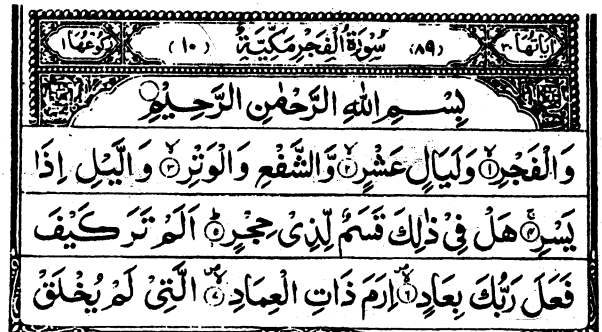 اٰیَاتُهَا ٣٠ (٨٩) سُوْرَةُ الْفَجْرِ مَكِّيَّةٌ (١٠) رُكُوْعُهَا ١
بِسْمِ اللّٰهِ الرَّحْمٰنِ الرَّحِیْمِ
وَالْفَجْرِۙ‏﴿١﴾ وَلَیَالٍ عَشْرٍۙ‏﴿٢﴾ وَّالشَّفْعِ وَالْوَتْرِۙ‏﴿٣﴾ وَالَّیْلِ اِذَا
یَسْرِۚ‏﴿٤﴾ هَلْ فِیْ ذٰلِكَ قَسَمٌ لِّذِیْ حِجْرٍؕ‏﴿٥﴾ اَلَمْ تَرَ كَیْفَ
فَعَلَ رَبُّكَ بِعَادٍ۪ۙ‏﴿٦﴾ اِرَمَ ذَاتِ الْعِمَادِ۪ۙ‏﴿٧﴾ الَّتِیْ لَمْ یُخْلَقْ